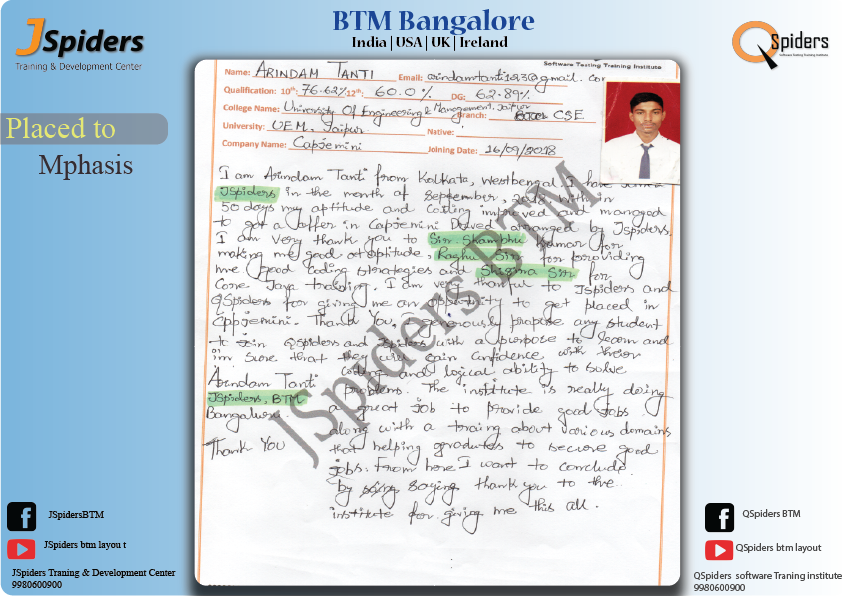 BTM Bangalore
India | USA | UK | Ireland
JSpiders
Training & Development Center
QSpiders
Software Testing Training Institute
Placed to
Mphasis
Software Testing Training Institute
Name: ARINDAM TANTI Email: arindamtanti123@gmail.com
Qualification: 10th: 76.62% 12th: 60.0% DG: 62.89%
College Name: University Of Engineering & Management, Jaipur Branch: CSE
University: UEM, Jaipur Native:
Company Name: Capjemini Joining Date: 16/09/2018
I am Arindam Tanti from Kolkata, Westbengal. I have
JSpiders in the month of September, 2018 within
50 days my aptitude and coding improved and managed
to got a offer in Capjemini Drived arranged by Jspiders.
I am very thank you to Sir. Shambhu Kumar for
making me good at aptitude, Raghu Sir for providing
me good coding strategies and Sir for
Core Java training. I am very thankful to Jspiders and
QSpiders for giving me an oppurtunity to get placed in
Cappjemini. Thank You. I generously propose any student
to Join QSpiders and Jspiders with a purpose to learn and
im sure that they will gain confidence with their
coding and logical ability to solve
problems. The institute is really doing
a great job to provide good jobs
along with a traing about various domains
that helping graduates to secure good
jobs. From here I want to conclude
by saying thank you to the
institute for giving me this all.
Arindam Tanti
JSpiders, BTM
Bangaluru.
Thank You
JSpiders BTM
JSpidersBTM
JSpiders btm layou t
JSpiders Traning & Development Center
9980600900
QSpiders BTM
QSpiders btm layout
QSpiders software Traning institute
9980600900